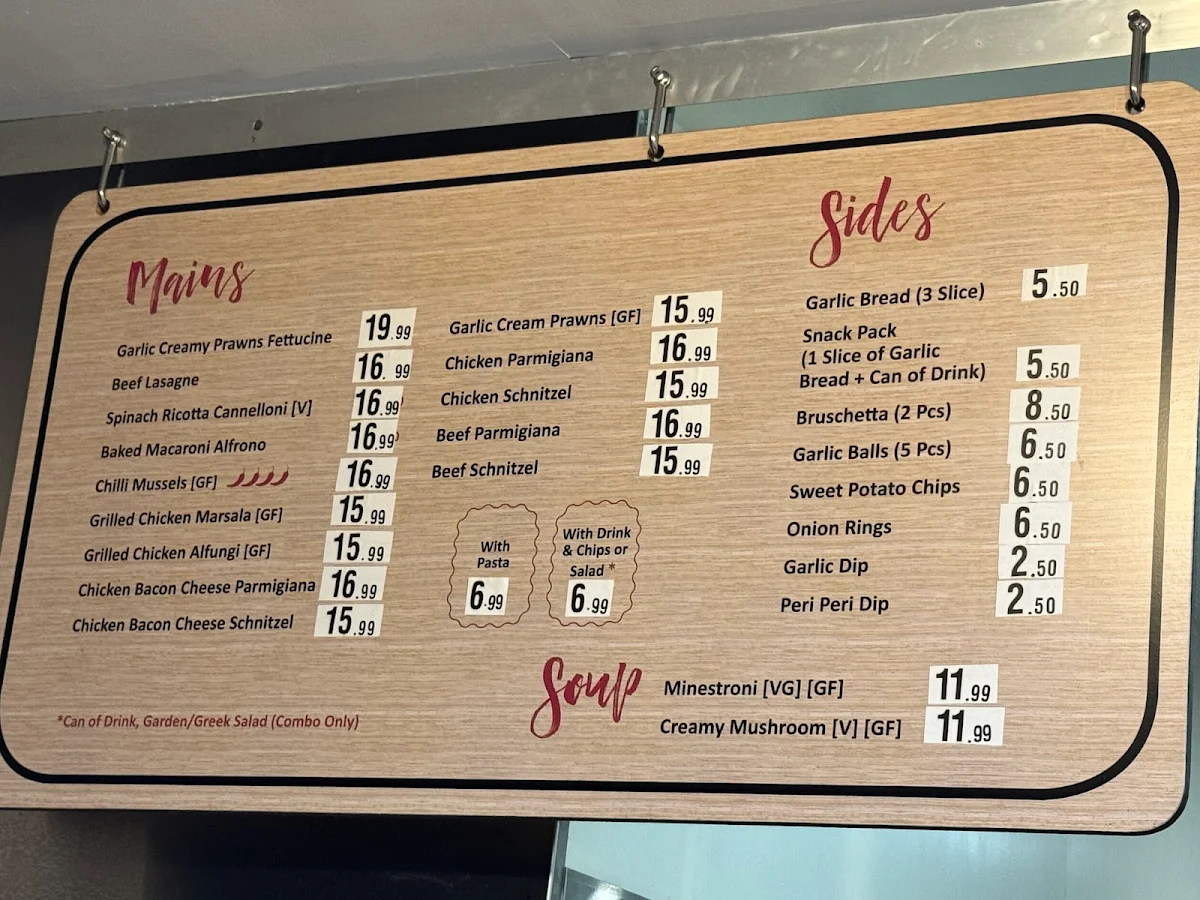 Mains
Garlic Creamy Prawns Fettucine 19.99
Beef Lasagne 16.99
Spinach Ricotta Cannelloni [V] 16.99
Baked Macaroni Alfrono 16.99
Chilli Mussels [GF] 16.99
Grilled Chicken Marsala [GF] 15.99
Grilled Chicken Alfungi [GF] 15.99
Chicken Bacon Cheese Parmigiana 16.99
Chicken Bacon Cheese Schnitzel 15.99
*Can of Drink, Garden/Greek Salad (Combo Only)
Garlic Cream Prawns [GF] 15.99
Chicken Parmigiana 16.99
Chicken Schnitzel 15.99
Beef Parmigiana 16.99
Beef Schnitzel 15.99
With
Pasta
6.99
With Drink
& Chips or
Salad *
6.99
Sides
Garlic Bread (3 Slice) 5.50
Snack Pack
(1 Slice of Garlic
Bread + Can of Drink) 5.50
Bruschetta (2 Pcs) 8.50
Garlic Balls (5 Pcs) 6.50
Sweet Potato Chips 6.50
Onion Rings 6.50
Garlic Dip 2.50
Peri Peri Dip 2.50
Soup
Minestroni [VG] [GF] 11.99
Creamy Mushroom [V] [GF] 11.99